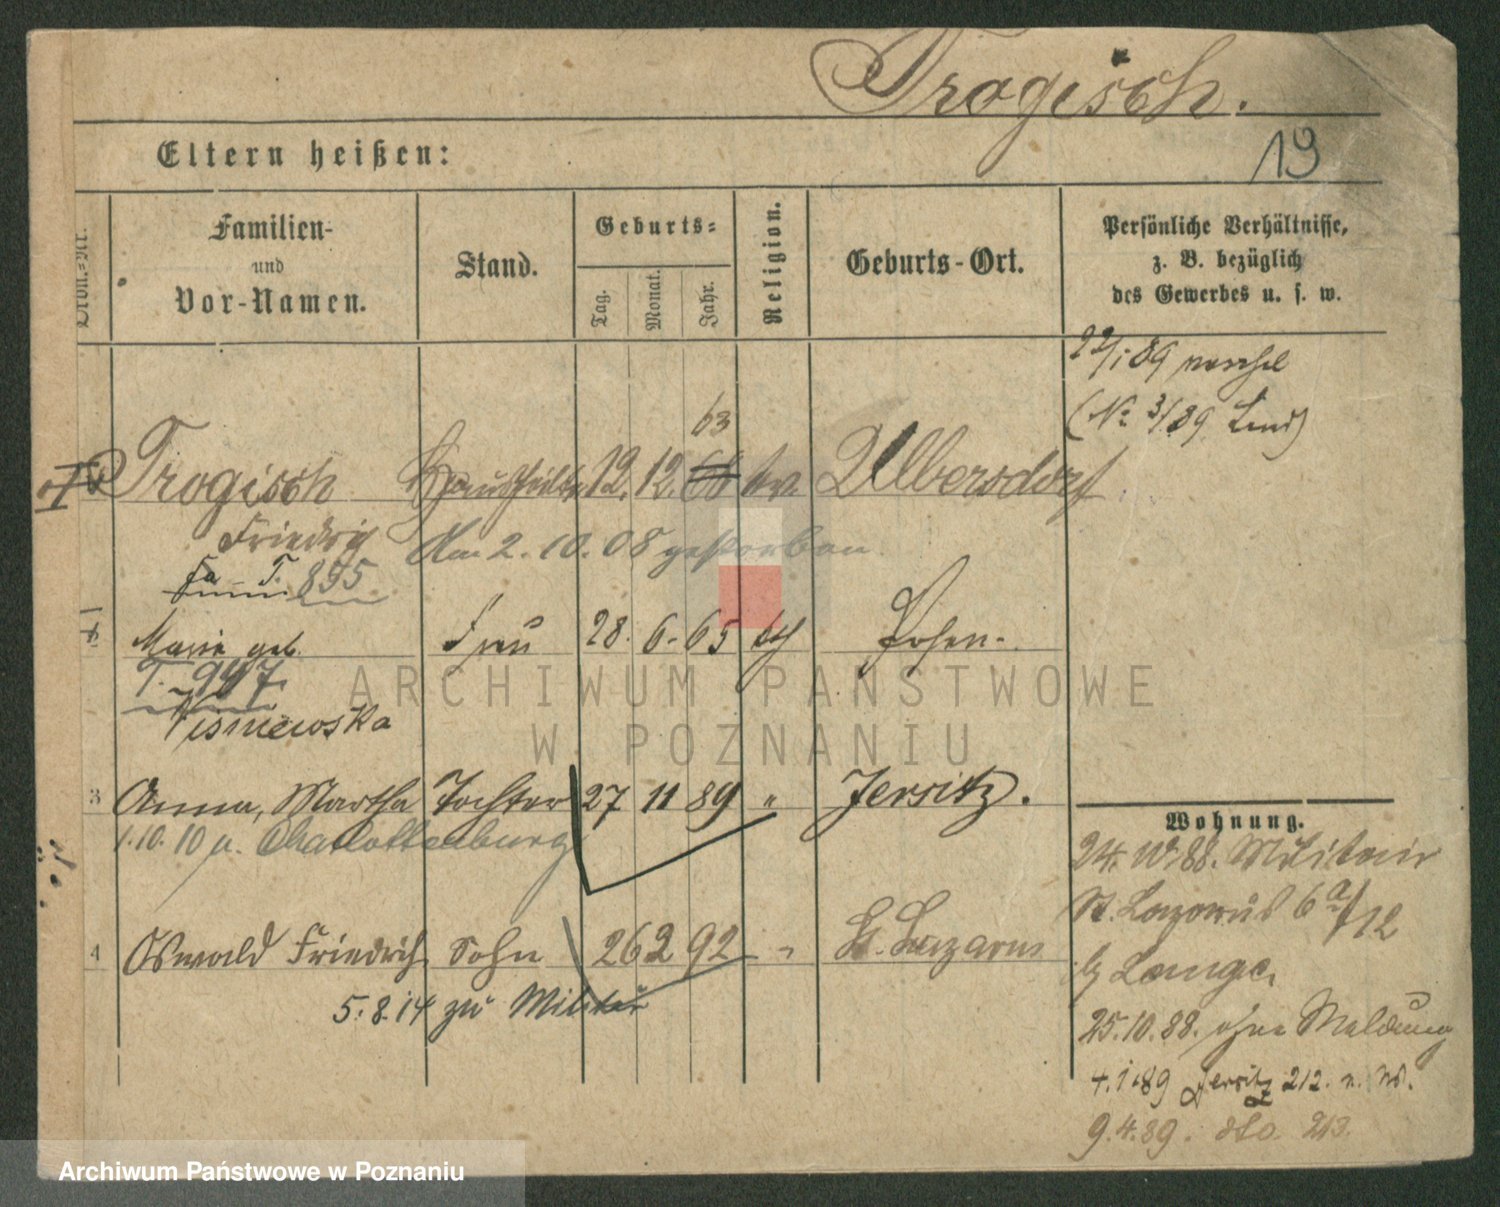 Trogisch.
Eltern heißen:
19
Ordn.-Nr.
Familien-
und
Vor-Namen.
Stand.
Geburts-
Tag.
Monat.
Jahr.
Religion.
Geburts-Ort.
Persönliche Verhältnisse,
z. B. bezüglich
des Gewerbes u. s. w.
22/1 89
(No 3/89
63
Trogisch 12. 12. 68 ev. Ulbersdorf
Friedrich Am 2. 10. 08 gestorben
T. 895.
Marie geb. Frau 28. 6. 65 Posen.
T. 947
Wisniewska
3 Anna, Martha Tochter 27 11 89 " Jersitz.
1.10.10 n. Charlottenburg
4 Oswald Friedrich Sohn 26 2 92 " St. Lazarus
5.8.14 zu Militär
Wohnung.
24. 10. 88. Militair
St. Lazarus 6a/12
b/ Lange.
25.10.88. ohne Meldung
4.1.89 Jersitz 212. n. W.
9.4.89. dto. 213.
ARCHIWUM PAŃSTWOWE
W POZNANIU
Archiwum Państwowe w Poznaniu